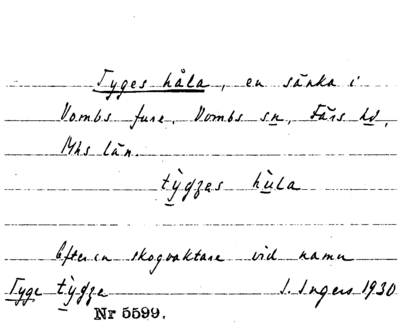 Tyges håla, en sänka i
Vombs fure, Vombs sn, Färs hd,
Mhs län.
tỳgzes hùla
Efter en skogvaktare vid namn
Tyge tỳgze I. Ingers 1930
Nr 5599.